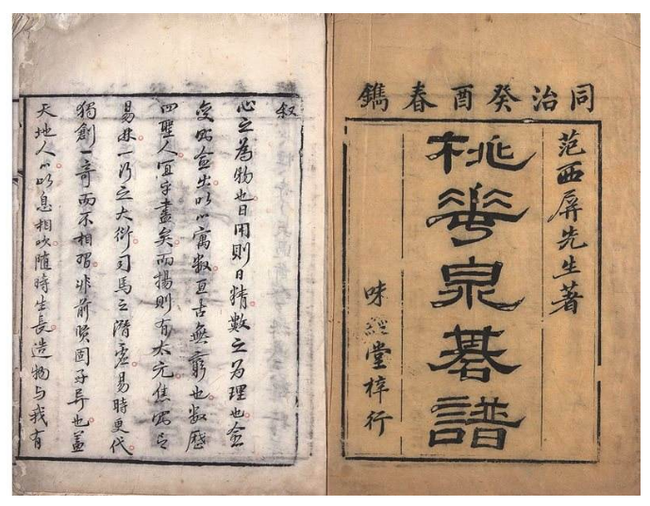 同治癸酉春鐫
范西屏先生著
桃華泉碁譜
味經堂梓行
叙
心之為物也日用則日精數之為理也愈
變而愈出以心寓數亘古無窮也數歷
四聖人宜乎盡矣而揚則有太元焦
易林一行之大衍司馬之潛虛易時更代
獨創一奇而不相習非前賢固異也蓋
天地人以息相吹隨時生長造物與我有